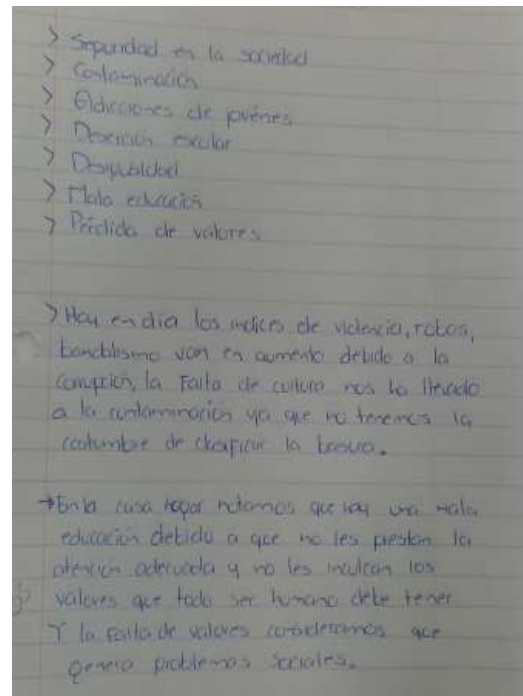 > Seguridad en la sociedad
> Contaminación
> Adicciones de jovenes
> Deserción escolar
> Desigualdad
> Mala educación
> Pérdida de valores
> Hoy en dia los indices de violencia, robos,
bandalismo van en aumento debido a la
corrupción, la Falta de cultura nos ha llevado
a la contaminación ya que no tenemos la
costumbre de clasificar la basura.
→ En la casa hogar notamos que hay una mala
educación debido a que no les prestan la
atención adecuada y no les inculcan los
valores que todo ser humano debe tener
Y la Falta de valores consideramos que
genera problemas sociales.